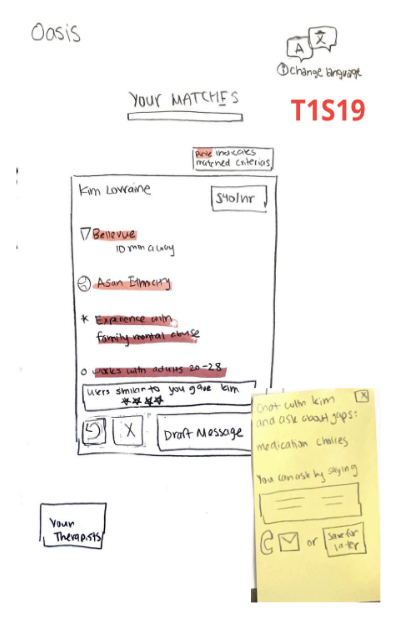 Oasis
A 文
Change language
YOUR MATCHES
T1S19
Pink indicates
matched criterias
Kim Lorraine
$40/hr
Bellevue
10 min away
Asian Ethnicity
* Experience with
family mental abuse
works with adults 20-28
Users similar to you gave Kim
X
Draft Message
Your
Therapists
X
Chat with Kim
and ask about gaps:
medication choices
You can ask by saying
or
Save for
later